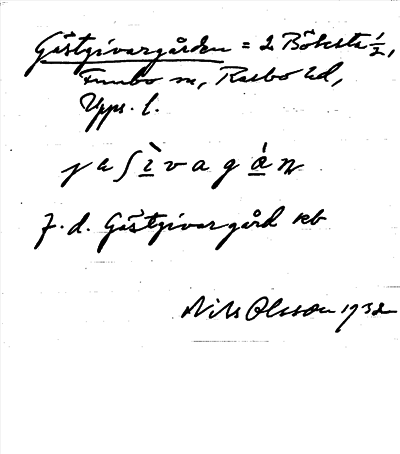 Gästgivargården = 2 Böksta 1/2,
Funbo sn, Rasbo hd,
Upps. l.
jeʃìvagán
f. d. Gästgivargård
Nils Olsson 1932